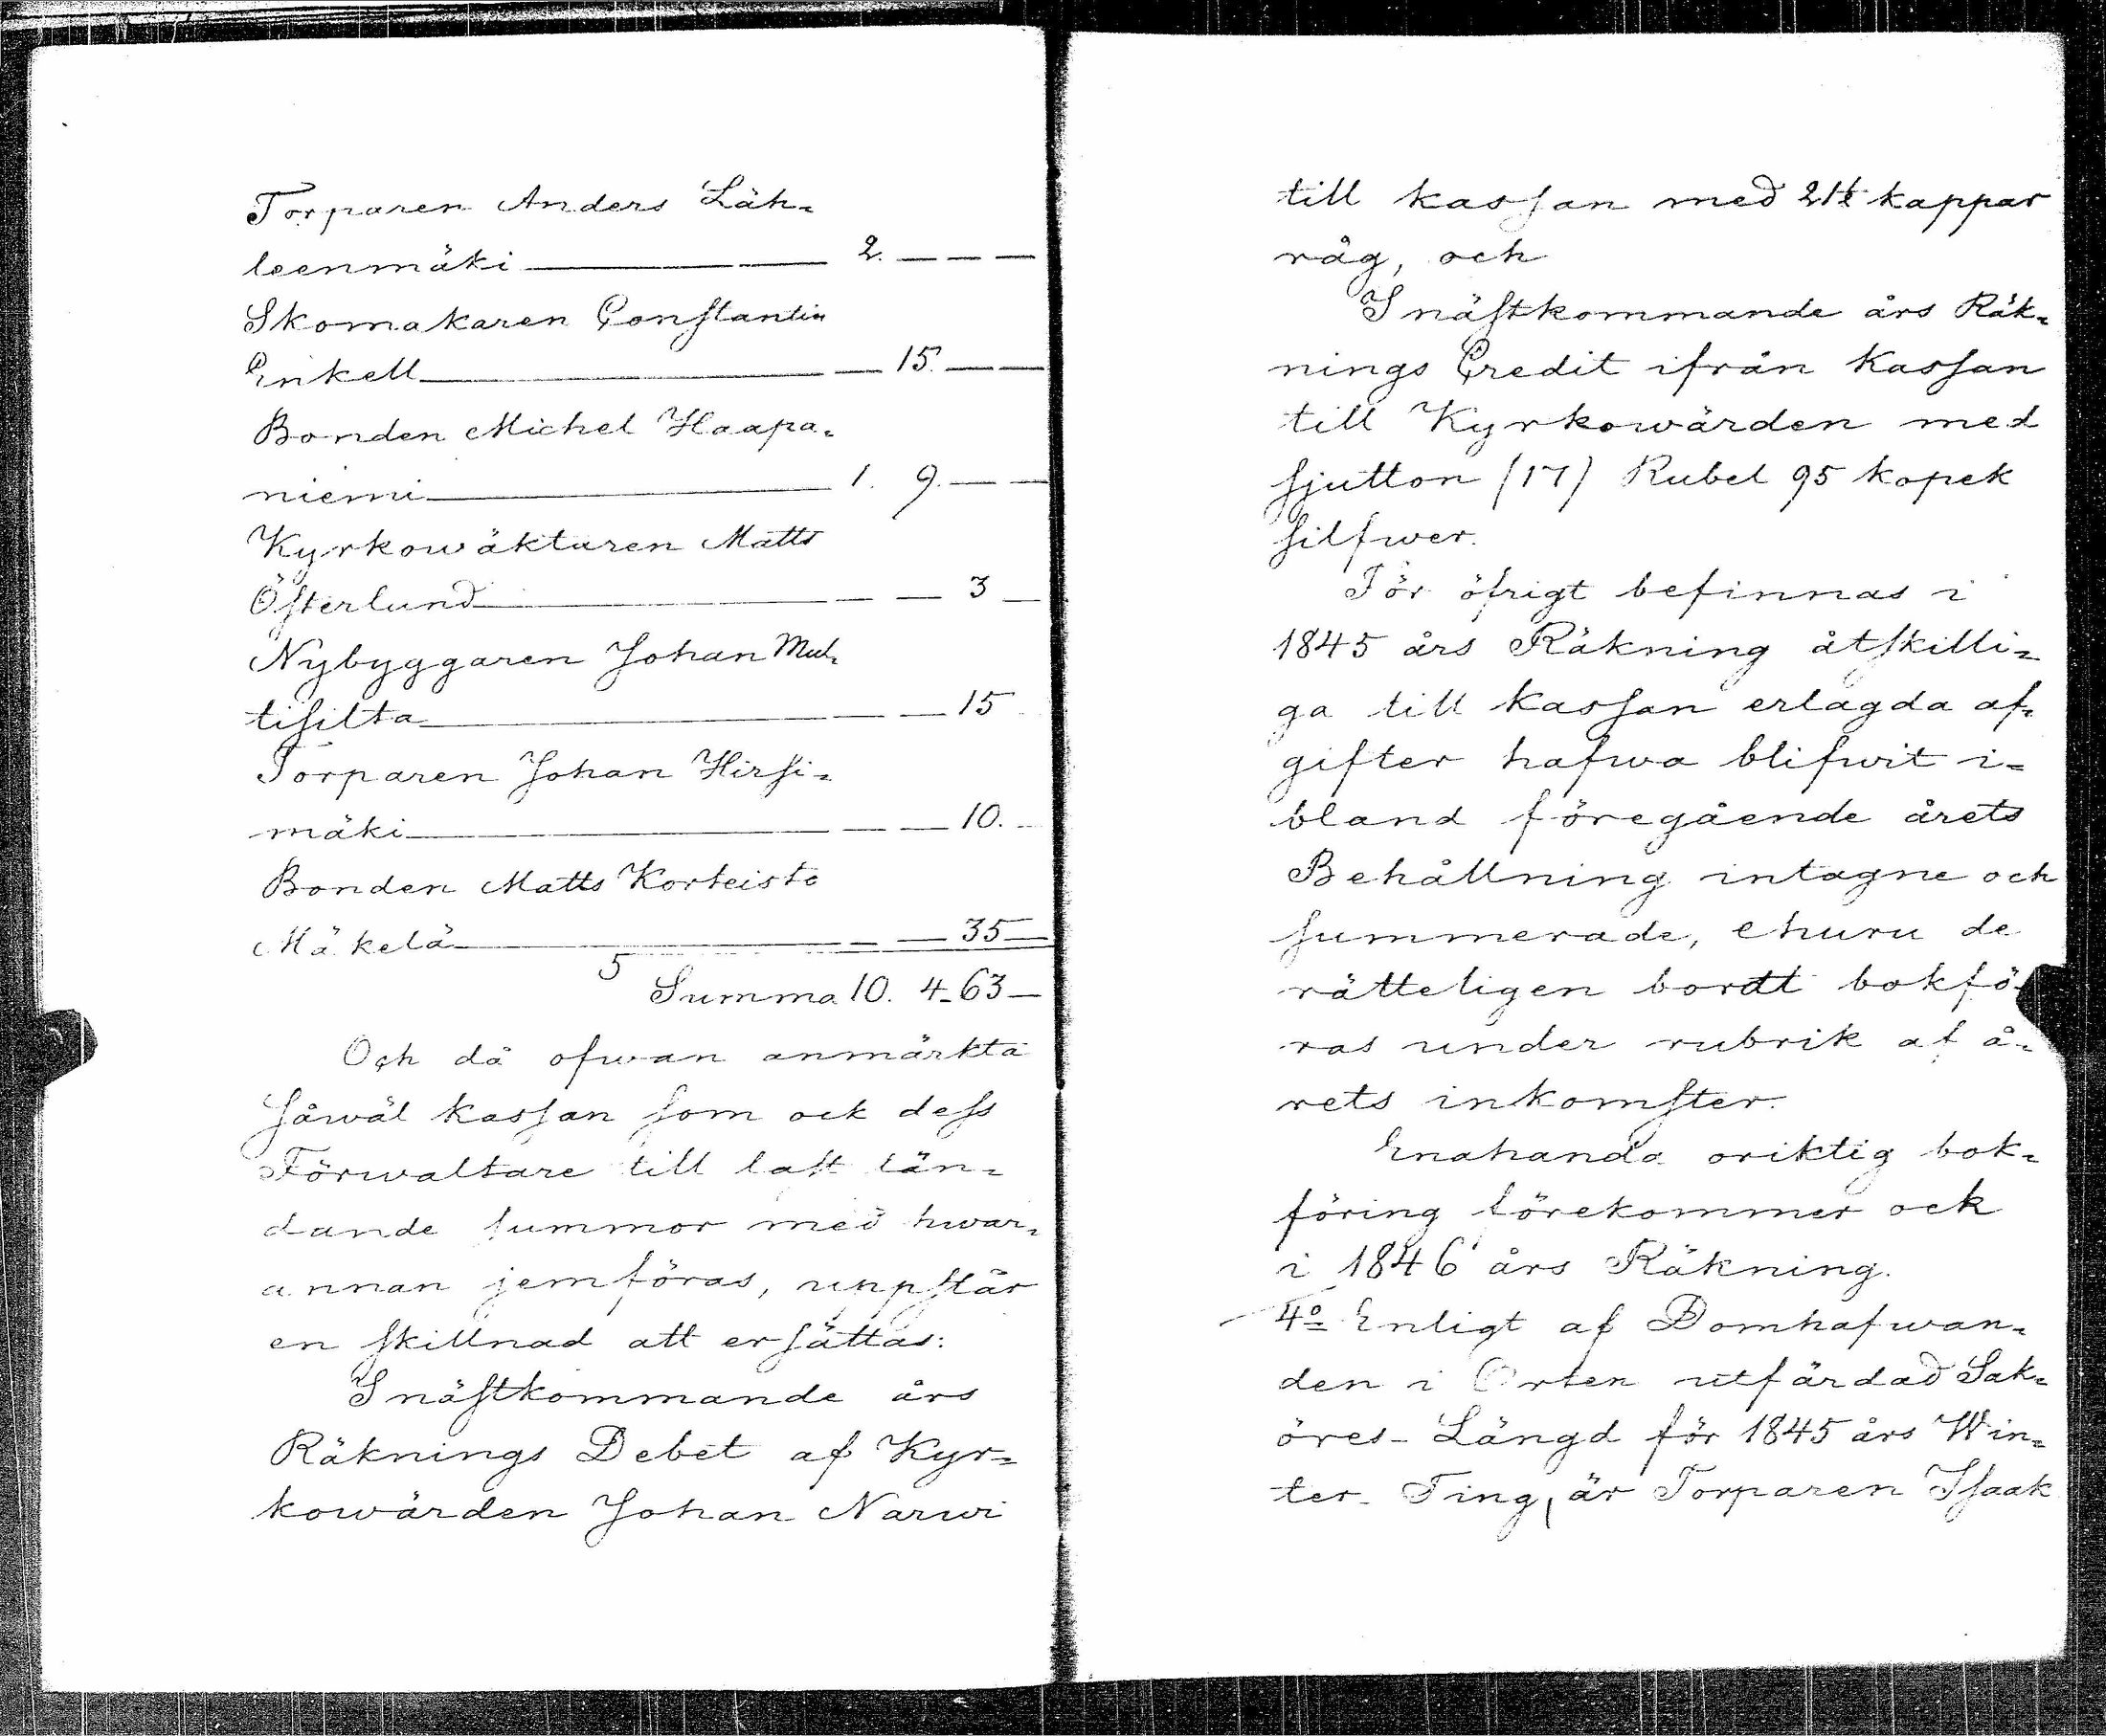 Torparen Anders Läh=
leenmäki ——— 2. — — —
Skomakaren Constantin
Enkell ——— — 15. — —
Bonden Michel Haapa=
niemi ——— 1. 9. — —
Kyrkowäktaren Matts
Österlund ——— — — 3 —
Nybyggaren Johan Mul=
tisilta ——— — — 15
Torparen Johan Hirsi=
mäki ——— — — 10. —
Bonden Matts Korteisto
Mäkelä ——— — — 35 —
5
Summa 10. 4 - 63 —
Och då ofwan anmärkta
såwäl kassan som ock dess
Förwaltare till last län=
dande summor med hwar=
annan jemföras, uppstår
en skillnad att ersättas:
I nästkommande års
Räknings Debet af Kyr=
kowärden Johan Narwi
till kassan med 21½ kappar
råg, och
I nästkommande års Räk=
nings Credit ifrån kassan
till Kyrkowärden med
sjutton (17) Rubel 95 kopek
silfwer.
För öfrigt befinnas i
1845 års Räkning åtskilli=
ga till kassan erlagda af=
gifter hafwa blifwit i=
bland föregående årets
Behållning intagne och
summerade, ehuru de
rätteligen bordt bokfö=
ras under rubrik af å=
rets inkomster.
Enahanda oriktig bok=
föring förekommer ock
i 1846 års Räkning.
4º Enligt af Domhafwan=
den i Orten utfärdad Sak=
öres- Längd för 1845 års Win=
ter- Ting, är Torparen Isaak